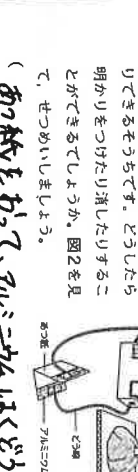 りできるそうちです。どうしたら
明かりをつけたり消したりするこ
とができるでしょうか。図2を見
て、せつめいしましょう。
(あつ紙をおって、アルミニウムはくどう
あつ紙
どう線
アルミニウム